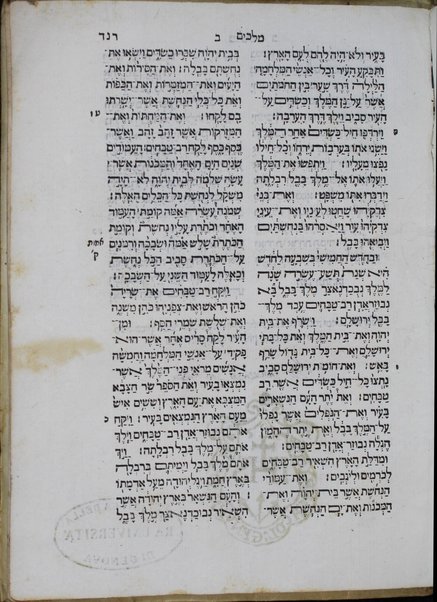 מלכים ב רנד
בעיר ולא היה לחם לעם הארץ׃
ותבקע העיר וכל אנשי המלחמה
הלילה דרך שער בין החמתים
אשר על גן המלך וכשדים על
העיר סביב וילך דרך הערבה׃
וירדפו חיל כשדים אחר המלך
וישגו אתו בערבות ירחו וכל חילו
נפצו מעליו׃ ויתפשו את המלך
ויעלו אתו אל מלך בבל רבלתה
וידברו אתו משפט׃ ואת בני
צדקיהו שחטו לעיניו ואת עיני
צדקיהו עור ויאסרהו בנחשתים
ויבאהו בבל׃
ובחדש החמישי בשבעה לחדש
היא שנת תשע עשרה שנה
למלך נבכדנאצר מלך בבל בא
נבוזראדן רב טבחים עבד מלך
בבל ירושלם׃ וישרף את בית
יהוה ואת בית המלך ואת כל בתי
ירושלם ואת כל בית גדול שרף
באש׃ ואת חומת ירושלם סביב
נתצו כל חיל כשדים אשר רב
טבחים׃ ואת יתר העם הנשארים
בעיר ואת הנפלים אשר נפלו
על המלך בבל ואת יתר ההמון
הגלה נבוזראדן רב טבחים׃
ומדלת הארץ השאיר רב טבחים
לכרמים וליגבים׃ ואת עמודי
הנחשת אשר בית יהוה ואת
המכנות ואת ים הנחשת אשר
בבית יהוה שברו כשדים וישאו את
נחשתם בבלה׃ ואת הסירות ואת
היעים ואת המזמרות ואת הכפות
ואת כל כלי הנחשת אשר ישרתו
בם לקחו׃ ואת המחתות ואת
המזרקות אשר זהב זהב ואשר
כסף כסף לקח רב טבחים׃ העמודים
שנים הים האחד והמכנות אשר
עשה שלמה לבית יהוה לא היה
משקל לנחשת כל הכלים האלה׃
שמנה עשרה אמה קומת העמוד
האחד וכתרת עליו נחשת וקומת
הכתרת שלש אמה ושבכה ורמנים
על הכתרת סביב הכל נחשת
וכאלה לעמוד השני על השבכה׃
ויקח רב טבחים את שריה
כהן הראש ואת צפניהו כהן משנה
ואת שלשת שמרי הסף׃ ומן
העיר לקח סריס אחד אשר הוא
פקיד על אנשי המלחמה וחמשה
אנשים מראי פני המלך אשר
נמצאו בעיר ואת הספר שר הצבא
המצבא את עם הארץ וששים איש
מעם הארץ הנמצאים בעיר׃ ויקח
אתם נבוזראדן רב טבחים וילך
אתם על מלך בבל רבלתה׃ ויך
אתם מלך בבל וימיתם ברבלה
בארץ חמת ויגל יהודה מעל אדמתו׃
והעם הנשאר בארץ יהודה אשר
השאיר נבוכדנאצר מלך בבל
אמות
ק׳